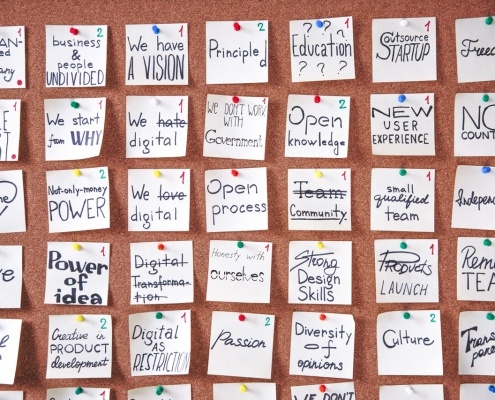 business 2
&
people
UNDIVIDED
We have 1
A VISION
Principle 2
d
? ? ? 1
Education
? ? ?
Outsource 1
STARTUP
We start 1
from WHY
We hate 1
digital
We DON'T WORK 2
WITH
Government
Open 2
knowledge
NEW 1
USER
EXPERIENCE
NO
Not-only-money 2
POWER
We love 1
digital
Open 1
process
Team
Community
small
qualified
team
Power 1
of
idea
Digital 1
Transforma-
tion
Honesty with 1
ourselves
Strong
Design
Skills
Products 1
LAUNCH
TEA
Creative in 2
PRODUCT
development
Digital 1
AS
RESTRICTION
Passion 2
Diversity
of
opinions
Culture 2
WE DON'T